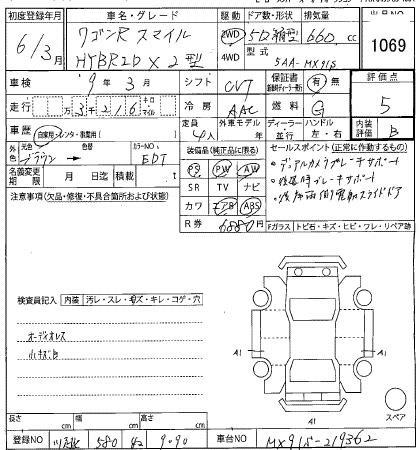 初度登録年月 車名・グレード 駆動 ドア数・形状 排気量
6/3月 ワゴンR スマイル 2WD 5D箱型 660cc 1069
HYBRID X 2型 型式 5AA-MX91S
車検 9年 3月 シフト CVT 保証書 有・無 評価点
走行 万 3千216 キロ マイル 冷房 AAC 燃料 G 5
車歴 自家用・レンタ・事業用( ) 定員 4人 外車モデル年 ディーラー・並行 ハンドル 左・右 内装評価 B
色 元色 ブラウン 色替 カラーNO EDT 装備品(純正品に限る) セールスポイント(正常に作動するもの)
名義変更期限 月 日迄 積載 t PS PW AW ・デュアルカメラブレーキサポート
注意事項(欠品・修復・不具合箇所および状態) SR TV ナビ ・後退時ブレーキサポート
カワ エアB ABS ・後席両側電動スライドドア
R券 6880円 Fガラス トビ石・キズ・ヒビ・フレ・リペア跡
検査員記入 内装 汚レ・スレ・キズ・キレ・コゲ・穴
オーディオレス
小キズ
A1 A1
A1 スペア
長さ cm 幅 cm 高さ cm
登録NO 580 9090 車台NO MX91S-219362